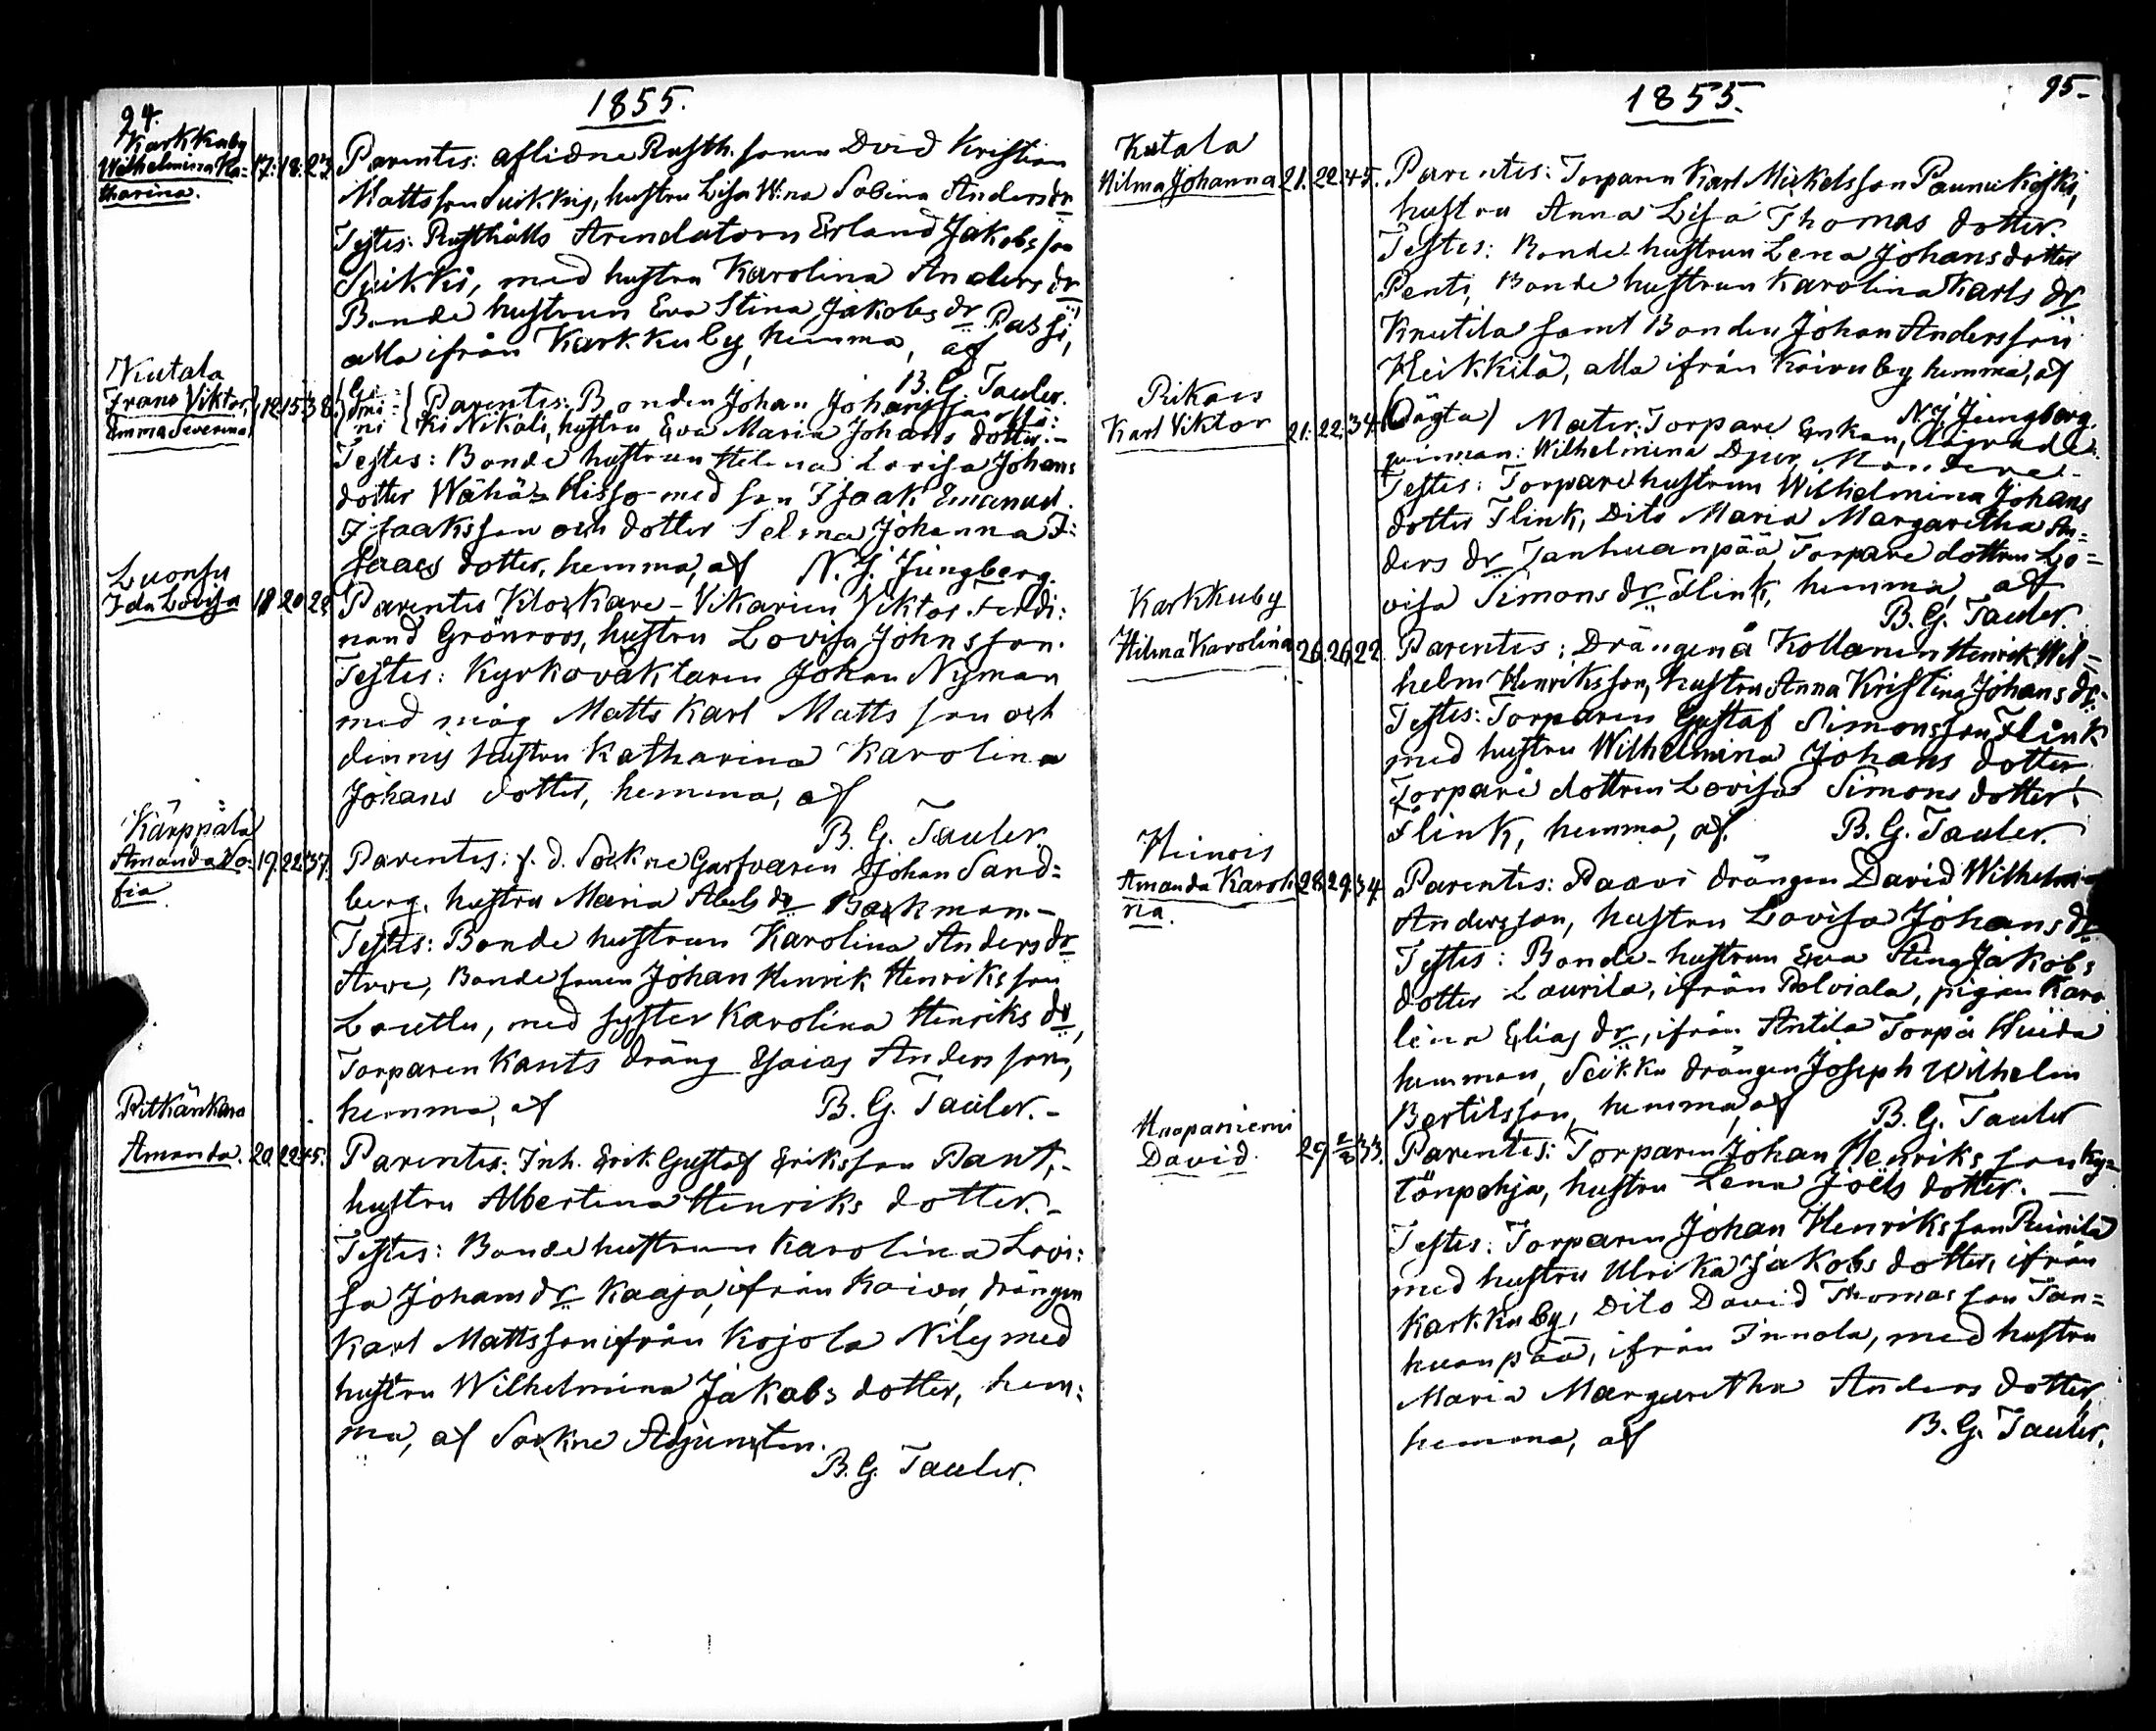 94.
1855.
Karkkuby
Wilhelmina Ka=
tharina.
17. 18. 23.
Parentes: aflidne Rusth. sonen Dvid Kristian
Mattsson Suikkis, hustru Lisa W:na Sabina Anders dr
Testes: Rusthålls Arendatorn Erland Jakobsson
Suikkis, med hustru Karolina Anders dr
Bonde hustrun Eva Stina Jakobs dr Passi,
alla ifrån Karkkuby, hemma, af
B. G. Tauler.
Kutala
Frans Viktor,
Emma Severina
12. 15. 38.
Parentes: Bonden Johan Johansson
ki Nikali, hustru Eva Maria Johans dotter.-
Testes: Bonde hustrun Helena Lovisa Johans
dotter Wähä=Hisso med son Isaak Emanuel
Isaaksson och dotter Selma Johanna I=
saacs dotter, hemma, af N. J. Jungberg.
Luonsu
Ida Lovisa
18 20 28
Parentes Klockare-Vikarien Viktor Ferdi=
nand Grönroos, hustru Lovisa Johnsson.
Testes: Kyrkovaktaren Johan Nyman
med måg Matts Karl Mattsson och
dennes hustru Katharina Karolina
Johans dotter, hemma, af
B. G. Tauler.
Kärppälä
Amanda So=
fia
19. 22. 37.
Parentes: f. d. Sockne Garfvaren Johan Sand=
berg, hustru Maria Abels dr Backman.-
Testes: Bonde hustrun Karolina Anders dr
Arve, Bondesonen Johan Henrik Henriksson
Louttu, med syster Karolina Henriks dr,
Torparen Kants dräng Esaias Andersson,
hemma, af B. G. Tauler.-
Pitkänkara
Amanda.
20. 22. 45.
Parentes: Inh. Erik Gustaf Eriksson Pant,-
hustru Albertina Henriks dotter.-
Testes: Bonde hustrun Karolina Lovi=
sa Johans dr Kaaja, ifrån Koivu, drängen
Karl Mattsson ifrån Kojola Nily med
hustru Wilhelmina Jakobs dotter, hem=
ma, af Sockne Adjuncten.
B. G. Tauler.
1855.
95-
Kutala
Hilma Johanna
21. 22. 45.
Parentes: Torparen Karl Mickelsson Paunukoski,
hustru Anna Lisa Thomas dotter.
Testes: Bonde hustrun Lena Johans dotter
Penti, Bonde hustrun Karolina Karls dr
Knutila samt Bonden Johan Andersson
Heikkilä, alla ifrån Koivuby, hemma, af
N. J. Jungberg.
Rikais
Karl Viktor
21. 22. 34.
(Oägta) Mater: Torpare Enkan, lägrade
qvinnan: Wilhelmina Djur,
Testes: Torparehustrun Wilhelmina Johans
dotter Flink, Dito Maria Margaretha An=
ders dr Tanhuanpää Torpare dottren Lo=
visa Simons dr Flink, hemma, af
B. G. Tauler.
Karkkuby
Hilma Karolina
26. 26. 22.
Parentes: Drängen å Kollanen Henrik Wil=
helm Henriksson, hustru Anna Kristina Johans dr.
Testes: Torparen Gustaf Simonsson Flink
med hustru Wilhelmina Johans dotter
Torpare dottren Lovisa Simons dotter
Flink, hemma, af. B. G. Tauler.
Heinois
Amanda Karoli
na.
28. 29. 34.
Parentes: Paavi drängen David Wilhelm
Andersson, hustru Lovisa Johans dr
Testes: Bonde-hustrun Eva Stina Jakobs
dotter Laurila, ifrån Polviala, pigan Karo
lina Elias dr, ifrån Antila Torpa Huida
hemman, Seikku drängen Joseph Wilhelm
Bertilsson, hemma, af B. G. Tauler
Haapaniemi
David.
29. 33.
Parentes: Torparen Johan Henriksson Ky=
tönpohja, hustru Lena Joels dotter. -
Testes: Torparen Johan Henriksson Reinilä
med hustru Ulrika Jakobs dotter, ifrån
Karkkuby, Dito David Thomasson Tan=
huanpää, ifrån Innala, med hustru
Maria Margaretha Anders dotter,
hemma, af B. G. Tauler.